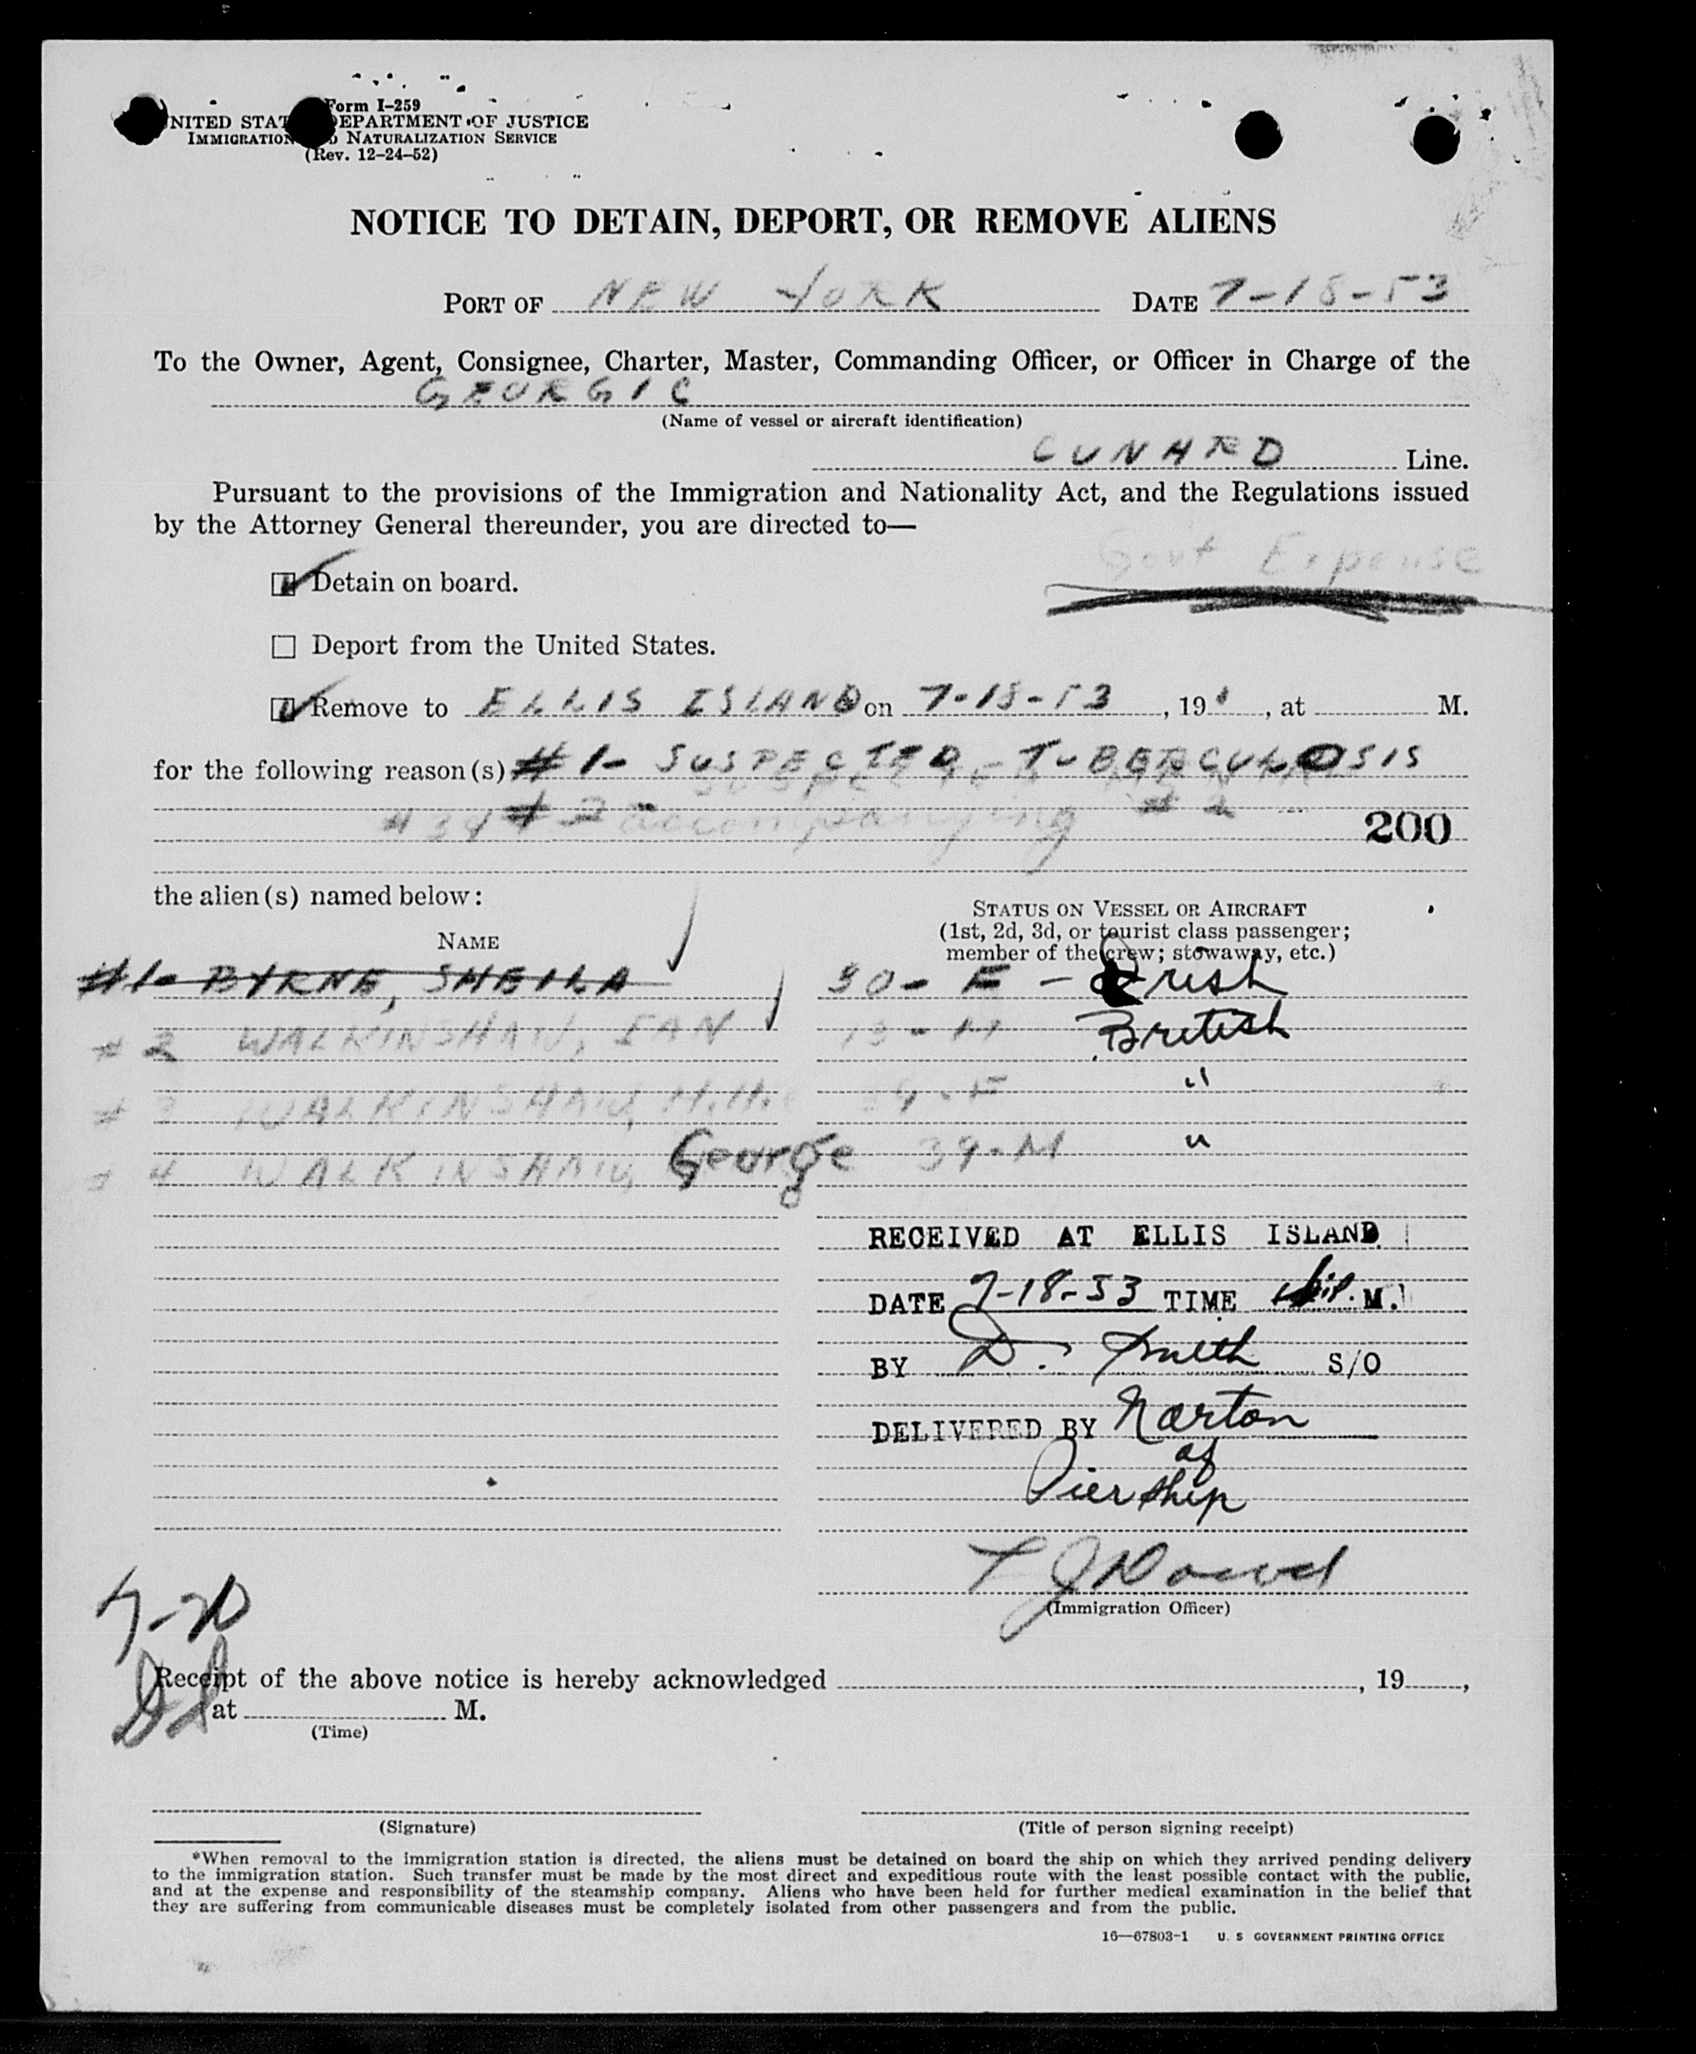 Form I-259
UNITED STATES DEPARTMENT OF JUSTICE
IMMIGRATION AND NATURALIZATION SERVICE
(Rev. 12-24-52)
NOTICE TO DETAIN, DEPORT, OR REMOVE ALIENS
PORT OF NEW YORK DATE 7-18-53
To the Owner, Agent, Consignee, Charter, Master, Commanding Officer, or Officer in Charge of the
GEORGIC
(Name of vessel or aircraft identification)
CUNARD Line.
Pursuant to the provisions of the Immigration and Nationality Act, and the Regulations issued
by the Attorney General thereunder, you are directed to—
Govt Expense
Detain on board.
Deport from the United States.
Remove to ELLIS ISLAND on 7-18-53, 19, at M.
for the following reason(s) #1- SUSPECTED TUBERCULOSIS
accompanying #2
200
the alien(s) named below:
STATUS ON VESSEL OR AIRCRAFT
(1st, 2d, 3d, or tourist class passenger;
member of the crew; stowaway, etc.)
NAME
#1- BYRNE, SHEILA 30- F - Irish
#2 WALKINSHAW, IAN 13 - M British
#3 WALKINSHAW, F "
#4 WALKINSHAW, George 39-M "
RECEIVED AT ELLIS ISLAND
DATE 7-18-53 TIME M.
BY D. Smith S/O
DELIVERED BY Narton
of
Piership
T J Dowd
(Immigration Officer)
7-20
Receipt of the above notice is hereby acknowledged , 19 ,
at M.
(Time)
(Signature) (Title of person signing receipt)
*When removal to the immigration station is directed, the aliens must be detained on board the ship on which they arrived pending delivery
to the immigration station. Such transfer must be made by the most direct and expeditious route with the least possible contact with the public,
and at the expense and responsibility of the steamship company. Aliens who have been held for further medical examination in the belief that
they are suffering from communicable diseases must be completely isolated from other passengers and from the public.
16—67803-1 U. S GOVERNMENT PRINTING OFFICE